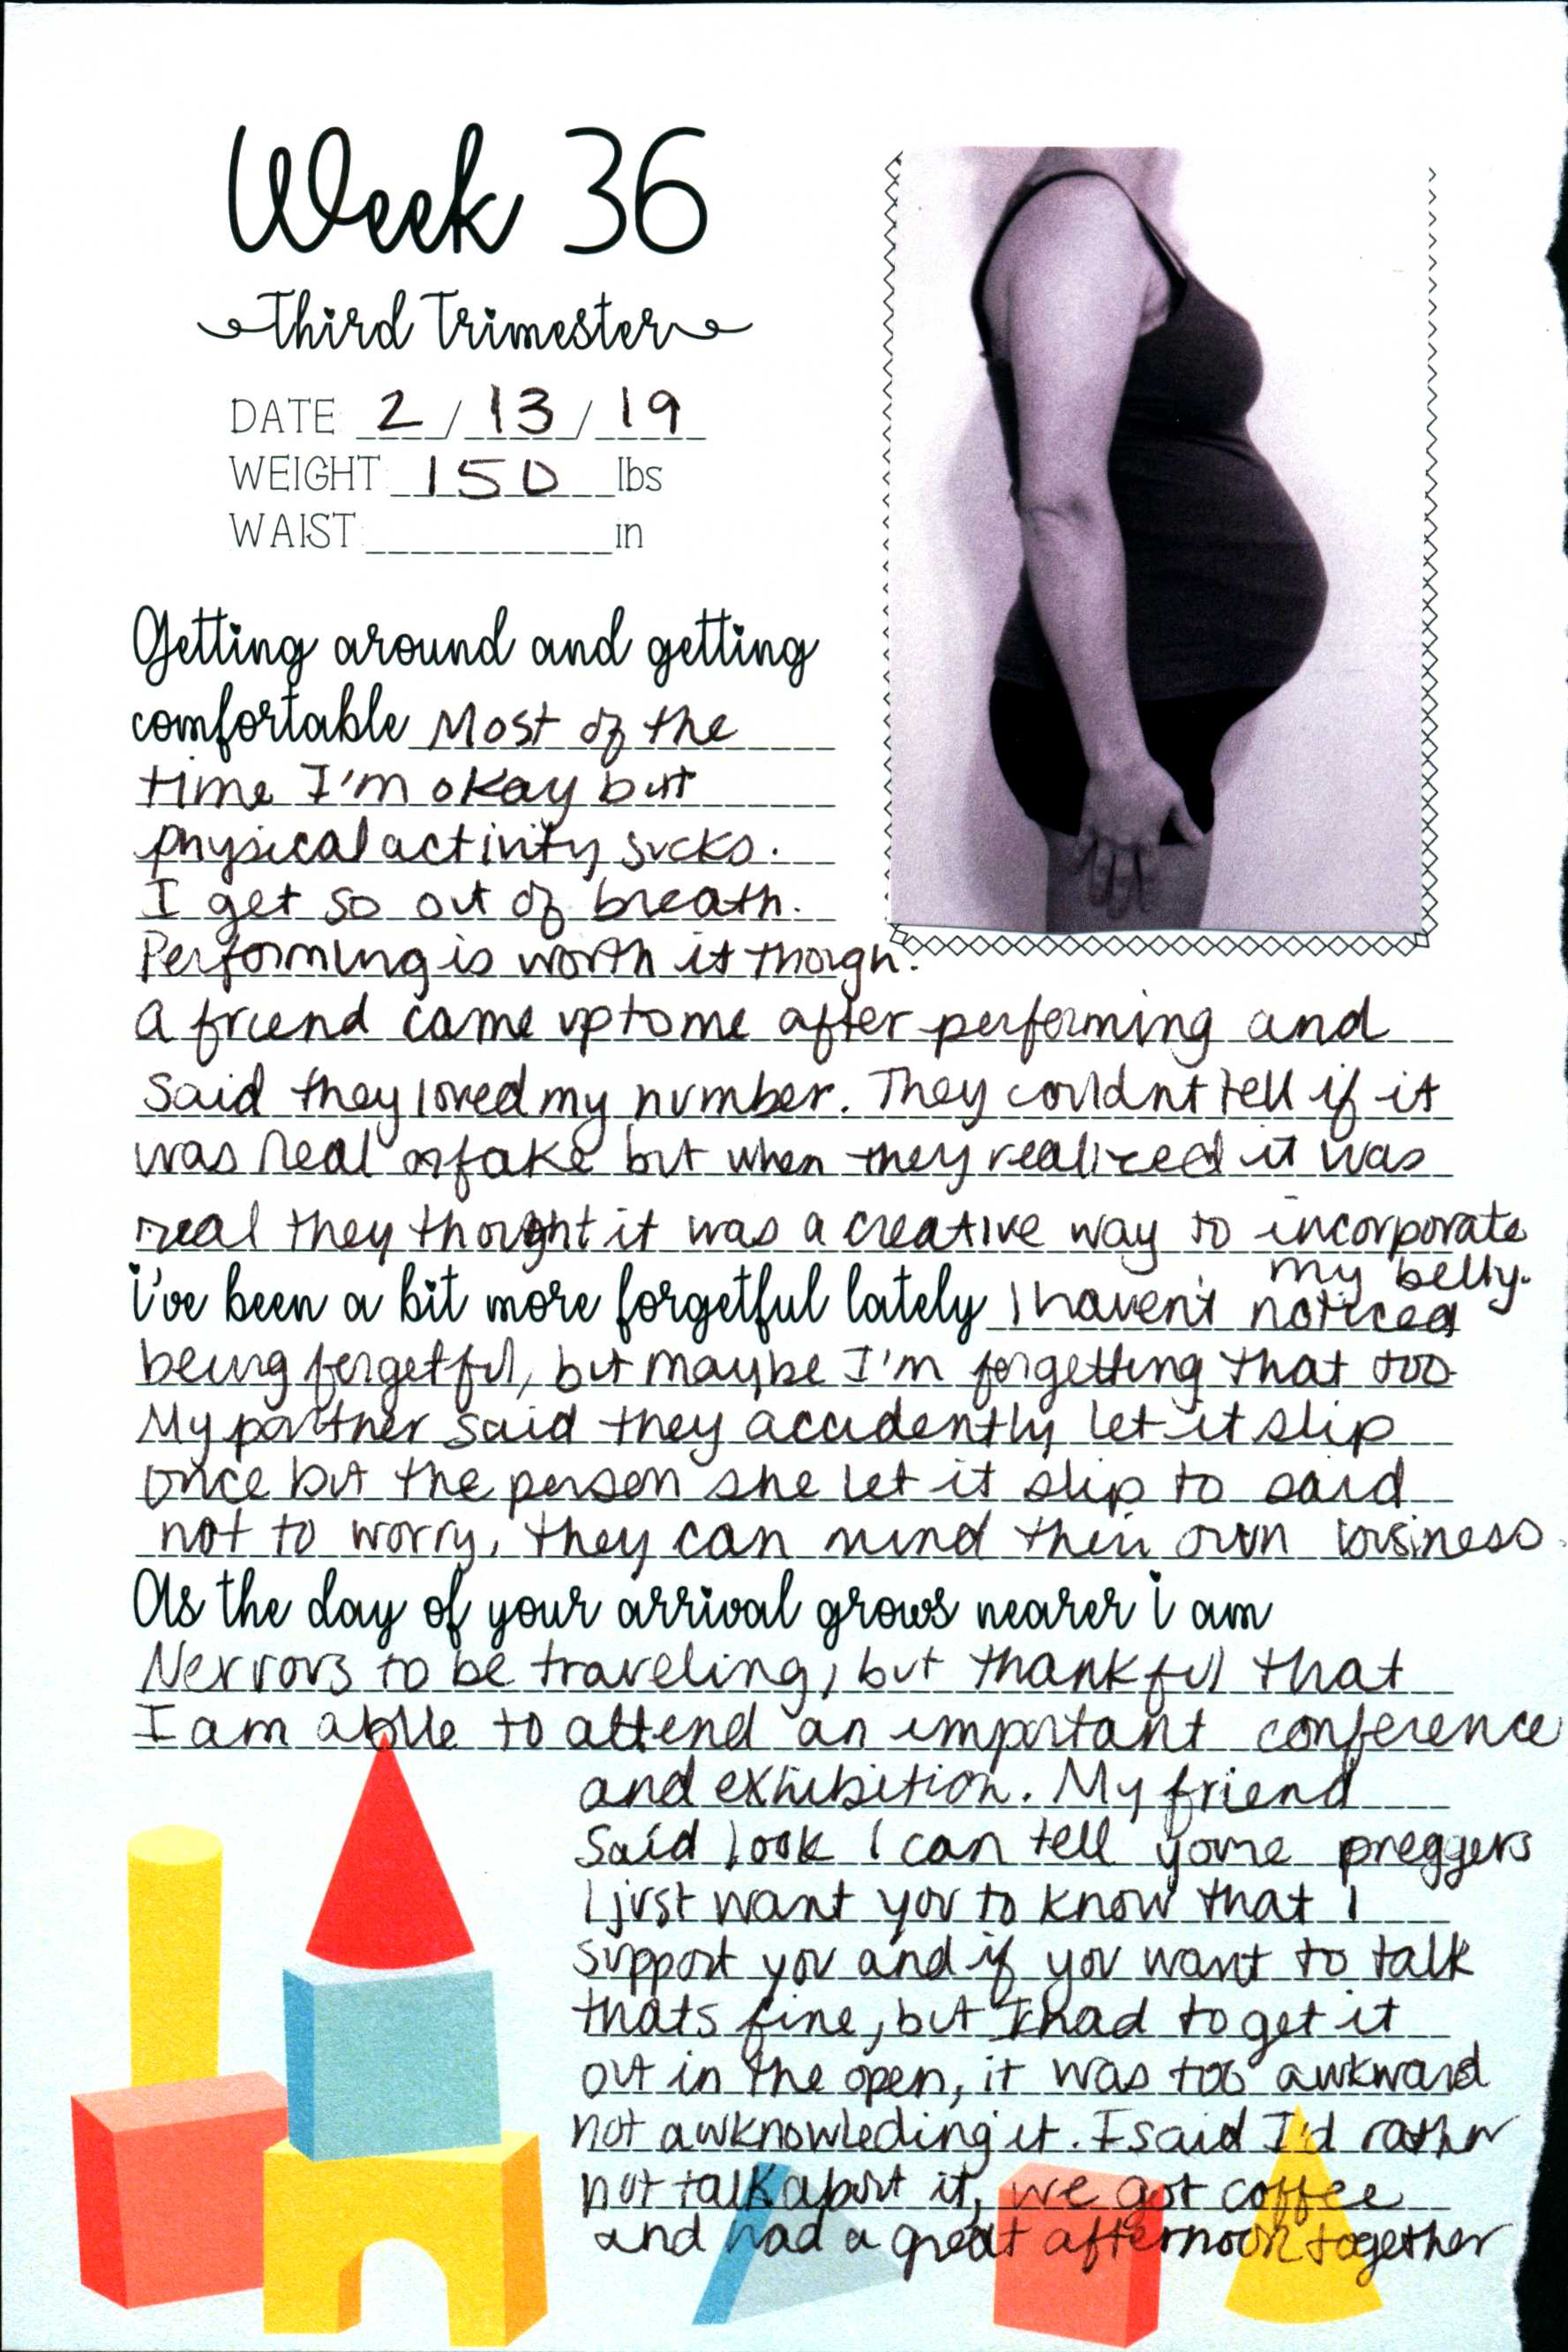 Week 36
Third Trimester
DATE 2/13/19
WEIGHT 150 lbs
WAIST in
Getting around and getting
comfortable Most of the
time I'm okay but
physical activity sucks.
I get so out of breath.
Performing is worth it though.
A friend came up to me after performing and
said they loved my number. They couldnt tell if it
was real or fake but when they realized it was
real they thought it was a creative way to incorporate
my belly.
i've been a bit more forgetful lately I haven't noticed
being forgetful, but maybe I'm forgetting that too
My partner said they accidently let it slip
once but the person she let it slip to said
not to worry, they can mind their own business.
As the day of your arrival grows nearer i am
Nervous to be traveling, but thankful that
I am able to attend an important conference
and exhibition. My friend
Said look I can tell youre preggers
I just want you to know that I
support you and if you want to talk
thats fine, but I had to get it
out in the open, it was too awkward
not awknowleding it. I said I'd rather
not talk about it, we got coffee
and had a great afternoon together